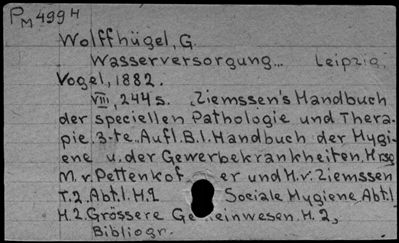 PM 499 H
Wolffhügel, G.
Wasserversorgung... Leipzig,
Vogel, 1882.
VIII, 244 s. Ziemssen's Handbuch
der speciellen Pathologie und Thera-
pie. 3-te Aufl. B.1. Handbuch der Hygi-
ene u. der Gewerbekrankheiten. Hrsg
M. v. Pettenkof er und H. v. Ziemssen
T. 2. Abt. 1. H. 2 Sociale Hygiene Abt. 1
H. 2. Grössere Ge einwesen. H. 2,
Bibliogr.